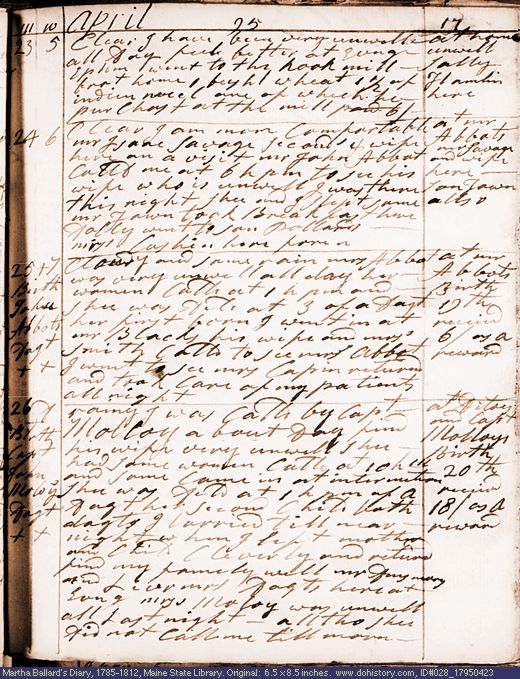 m w April 25 17
23 5 Clear I have been very unwell at home
all Day feel better at Evng unwell
Ephm went to the hook mill Sally
brot home 1 bush wheat 1 1/2 of Hamlin
indien meel one of which he here
purchast at the mill
24 6 Clear I am more Comfortable at mr
mr Isaac Savage second & wife Abbots
here on a visit mr John Abbot mr Savage
Calld me at 6 h pm to see his and wife
wife who is unwell I was there here
this night shee and I slept some son Town
mr Town took Breakfast here allso
Dolly went to son Pollards
mrs Cashen here fore n
25 7 Clowdy and some rain mrs Abbot at mr
Birth was very unwell all day her Abbots
John women Calld at 1 h pm and Birth
Abots she was Dld at 3 of a Dagt 19 th
Dagt her first born I went in at receivd
mr Blacks his wife and mrs 6/ as a
+ + Smith Calld to see mrs Abbot reward
I went to see mrs Capin returnd
and took Care of my patients
all night
26 D rainy I was Calld by Capt at Ditoes
Birth Molloy about Day find and Capt
Capt his wife very unwell shee Molloys
had some women Calld at 10 h Birth
and some Came in at intermition 20 th
Dagt shee was Dld at 1 h pm of a receivd
+ + Dagt their second Child both 18/ as a
dagts I tarried till near reward
night when I left mother
and Child Cleverly and returnd
find my famely well mr Dingny
and Lewer mrs Dagts here at
Evng mrs Moloy was unwell
all last night all tho shee
Did not Call me till morn
Martha Ballard's Diary, 1785-1812, Maine State Library. Original: 6.5 x 8.5 inches. www.dohistory.com, ID#028_17950423